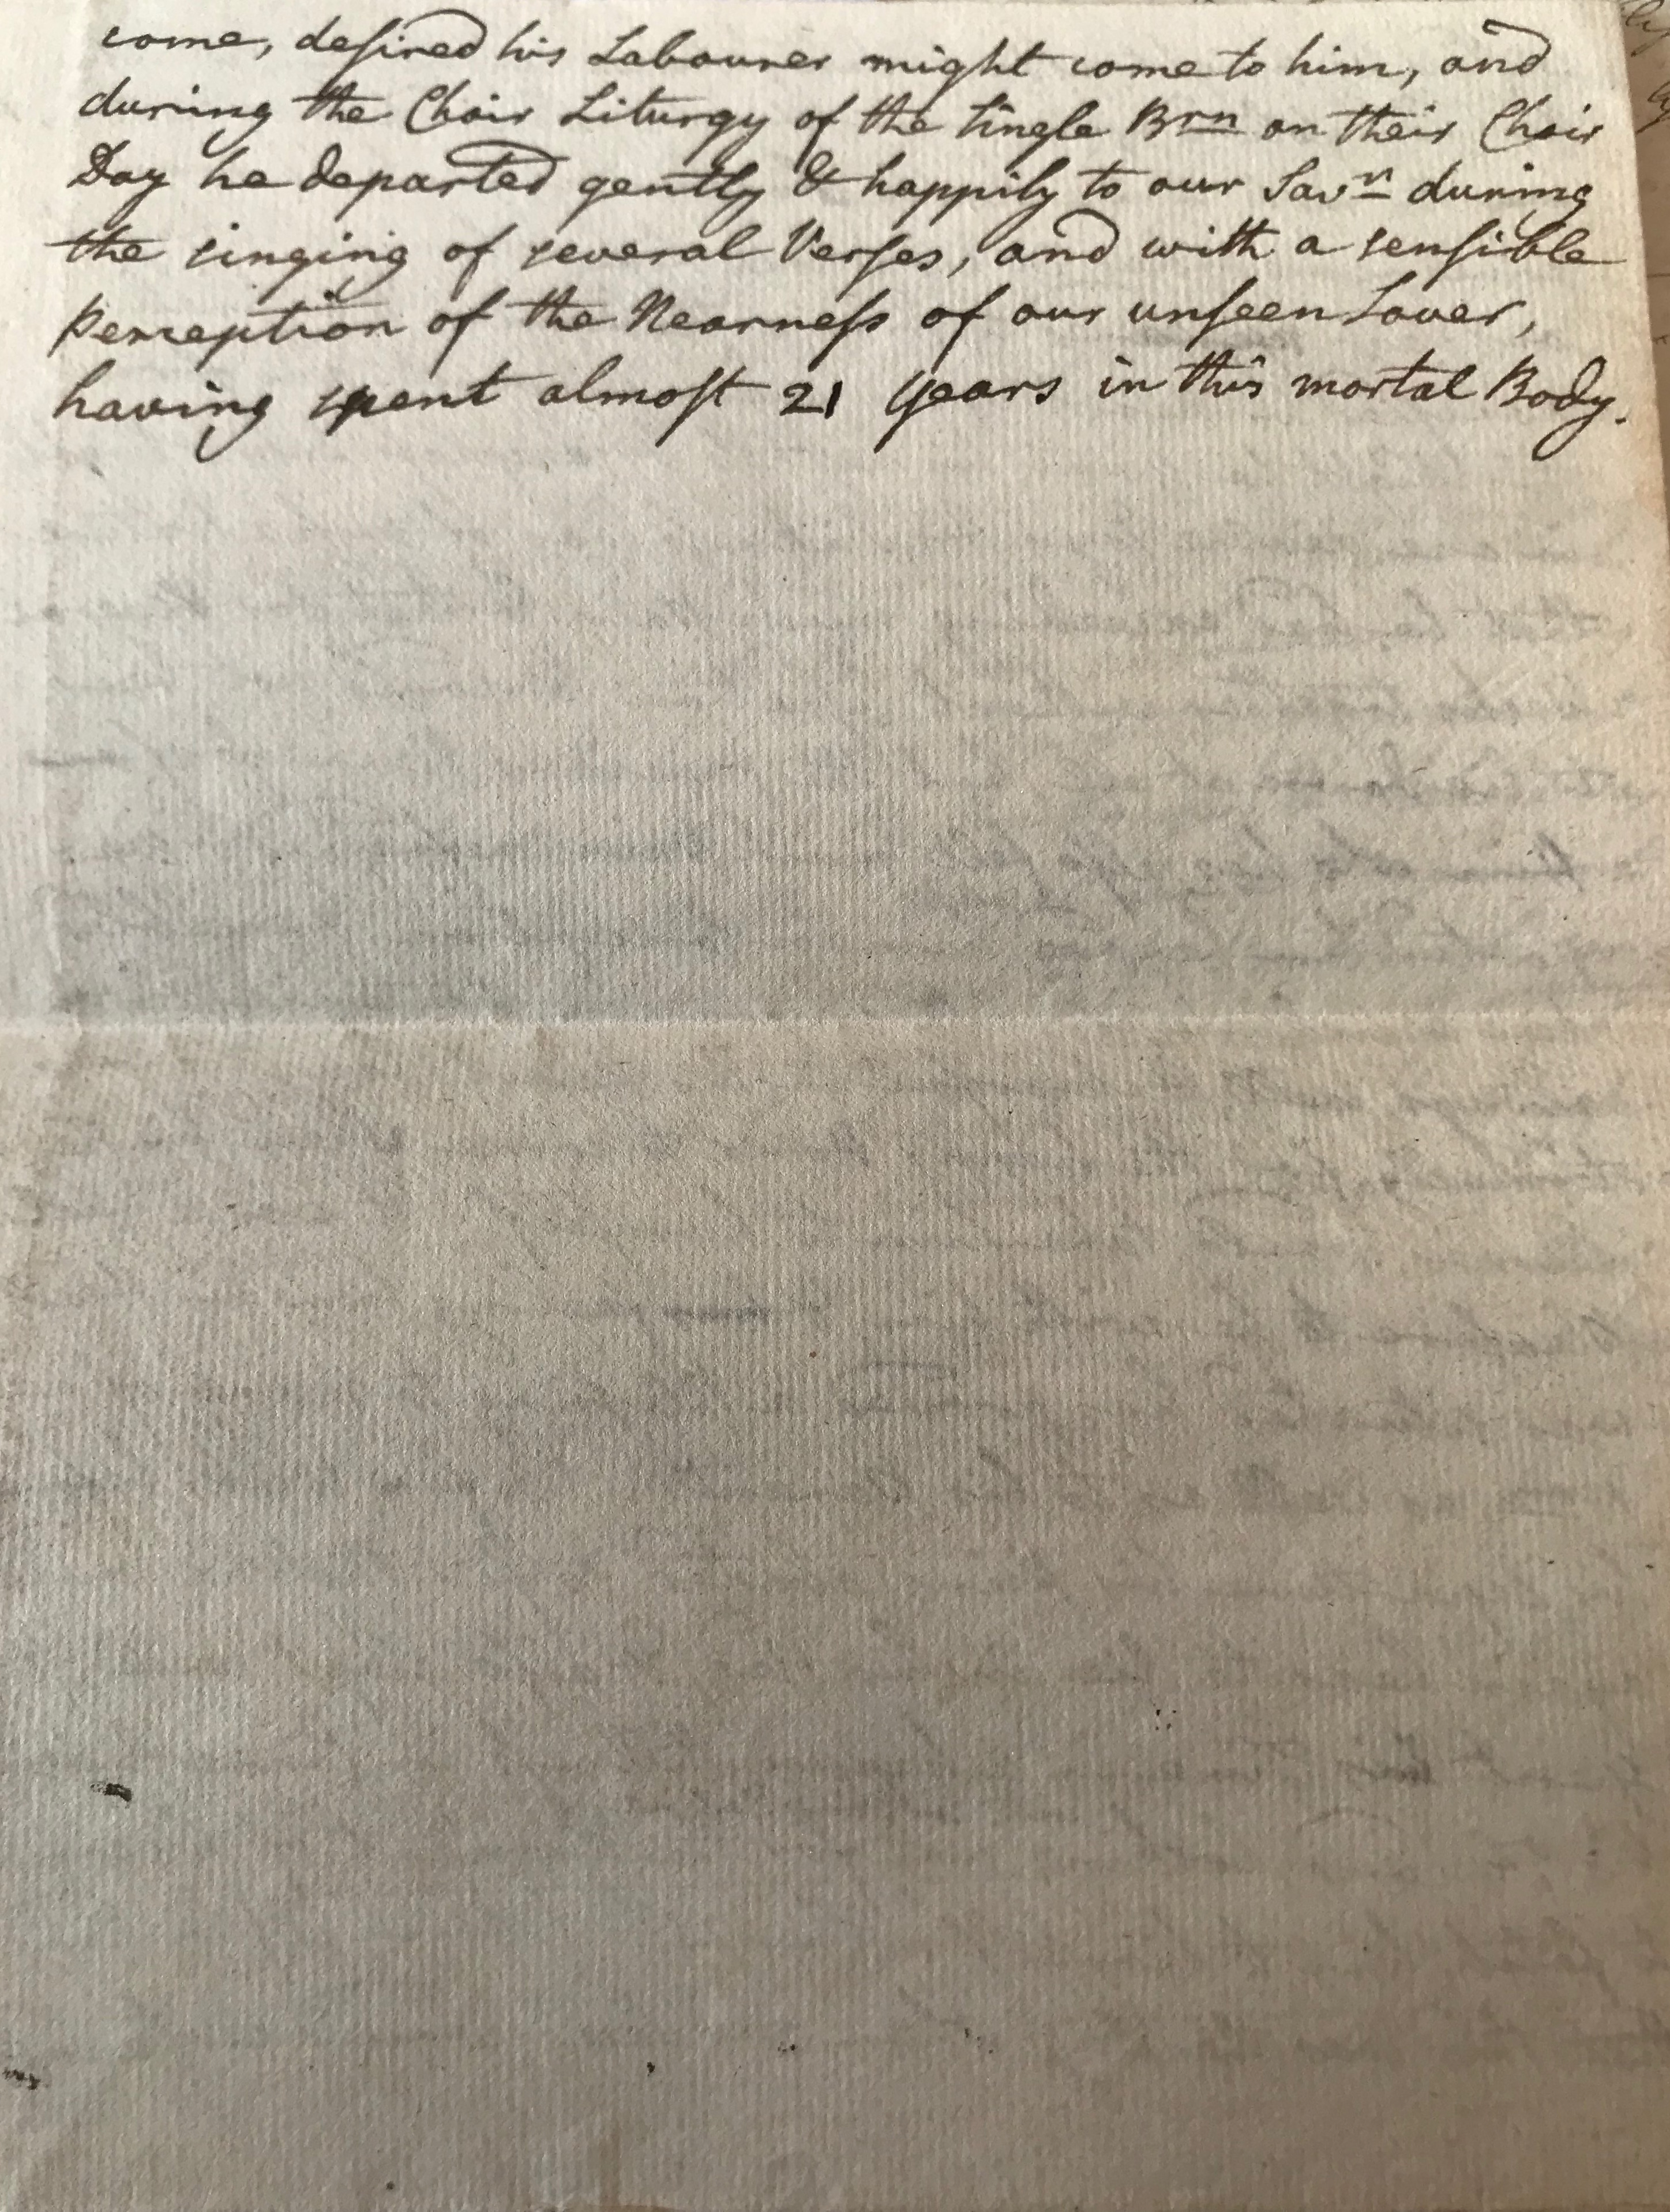 come, desired his Labourer might come to him, and
during the Choir Liturgy of the single Brn on their Choir
Day he departed gently & happily to our Savr during
the singing of several Verses, and with a sensible
perception of the Nearness of our unseen Lover,
having spent almost 21 years in this mortal Body.